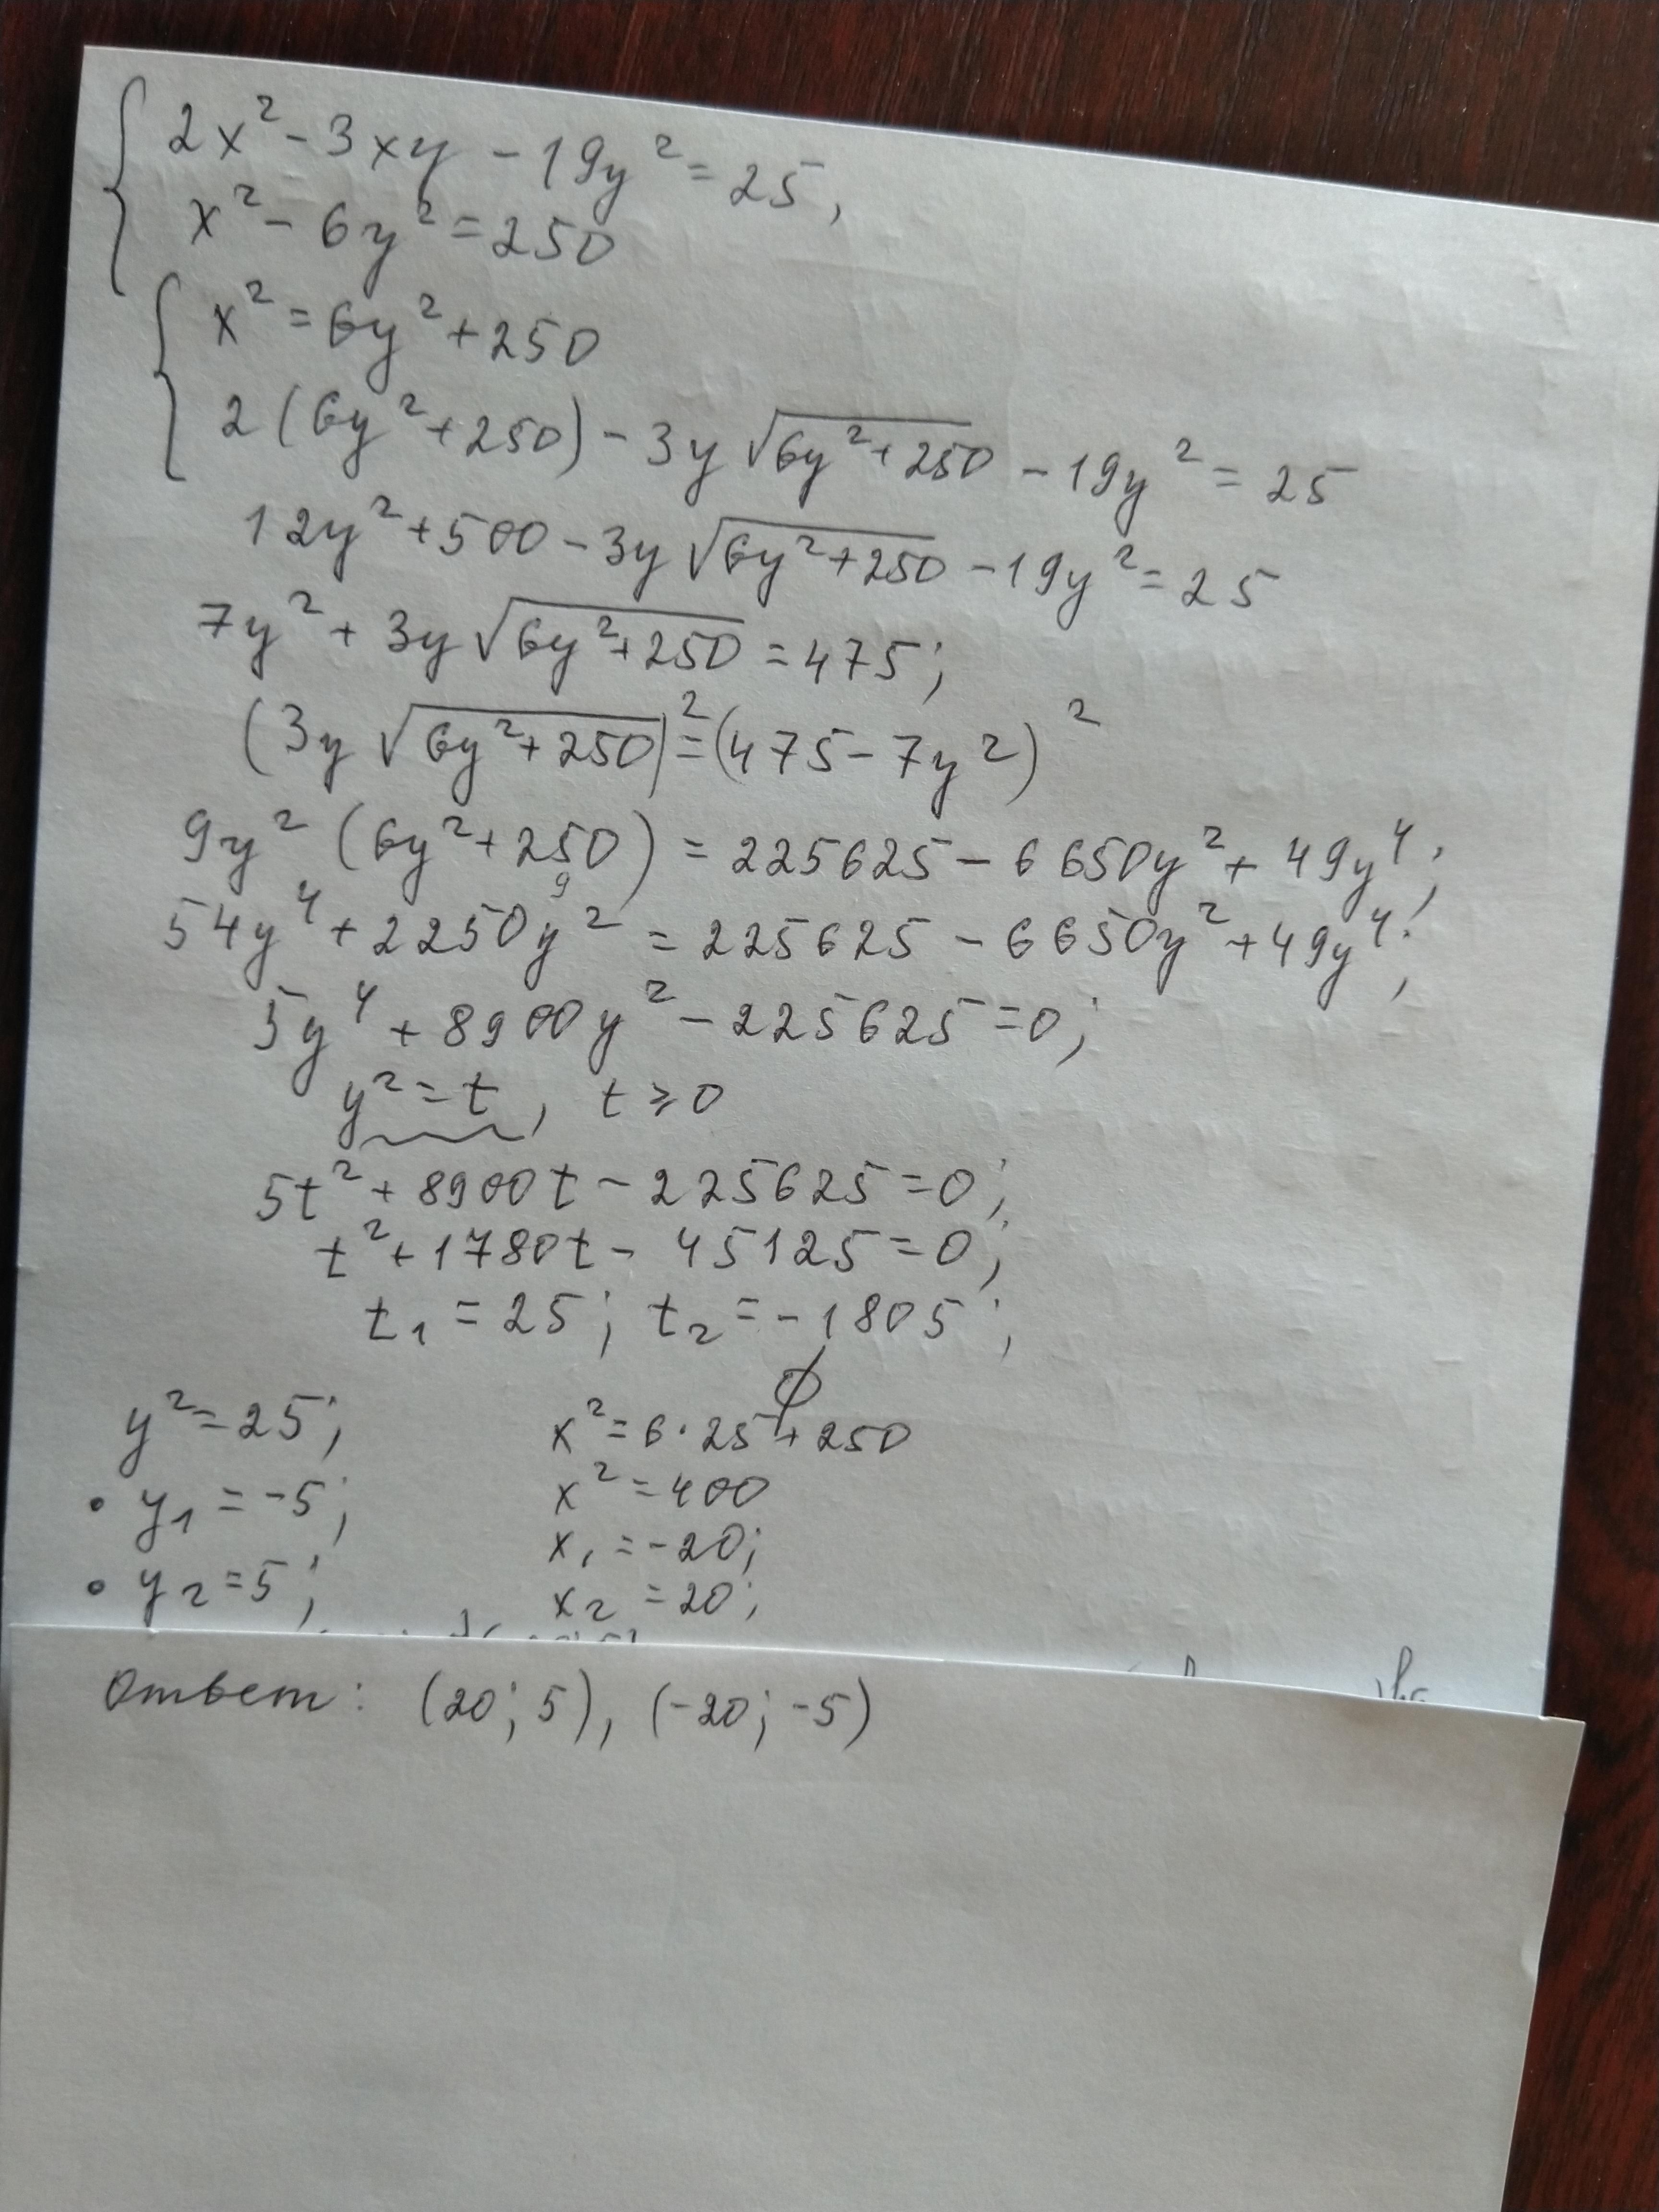 2x² - 3xy - 19y² = 25,
x² - 6y² = 250
x² = 6y² + 250
2(6y² + 250) - 3y√(6y² + 250) - 19y² = 25
12y² + 500 - 3y√(6y² + 250) - 19y² = 25
7y² + 3y√(6y² + 250) = 475;
(3y√(6y² + 250))² = (475 - 7y²)²
9y² (6y² + 250) = 225625 - 6650y² + 49y⁴;
9
54y⁴ + 2250y² = 225625 - 6650y² + 49y⁴;
5y⁴ + 8900y² - 225625 = 0;
y² = t, t ⩾ 0
5t² + 8900t - 225625 = 0;
t² + 1780t - 45125 = 0;
t₁ = 25; t₂ = -1805;
∅
y² = 25; x² = 6·25 + 250
x² = 400
y₁ = -5; x₁ = -20;
y₂ = 5; x₂ = 20;
Ответ: (20; 5), (-20; -5)